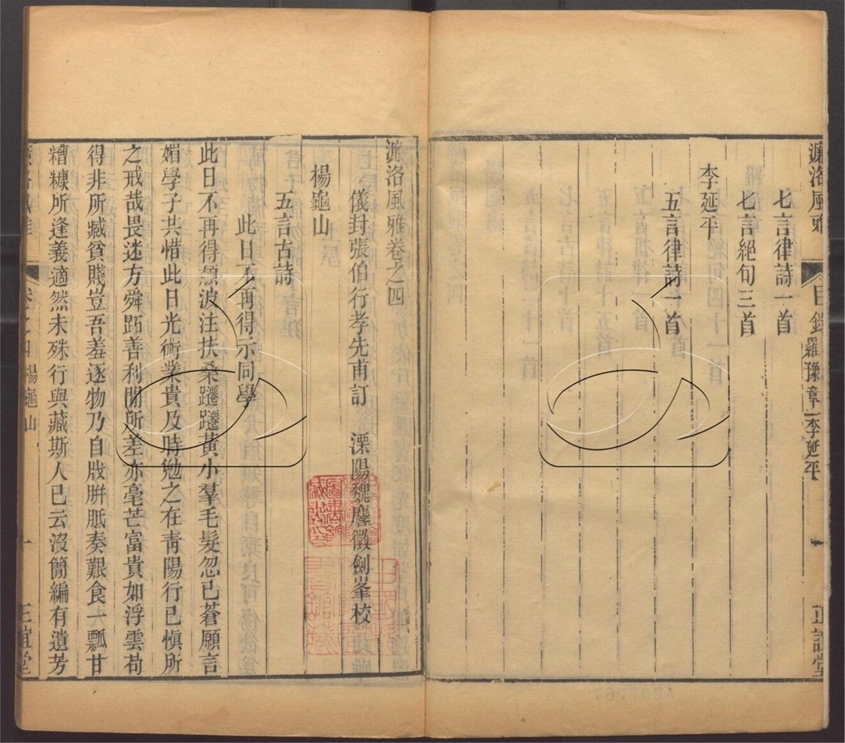 濂洛風雅
目錄 羅豫章 李延平
正誼堂
七言律詩一首
七言絕句三首
李延平
五言律詩一首
濂洛風雅卷之四
儀封張伯行孝先甫訂 溧陽魏麐徵劍峯校
楊龜山
五言古詩
此日不再得示同學
此日不再得頹波注扶桑躚躚黃小羣毛髮忽已蒼願言
媚學子共惜此日光術業貴及時勉之在青陽行已慎所
之戒哉畏迷方舜跖善利間所差亦毫芒富貴如浮雲苟
得非所臧貧賤豈吾羞逐物乃自戕胼胝奏艱食一瓢甘
糟糠所逢義適然未殊行與藏斯人已云沒簡編有遺芳
濂洛風雅
卷之四 楊龜山
一
正誼堂